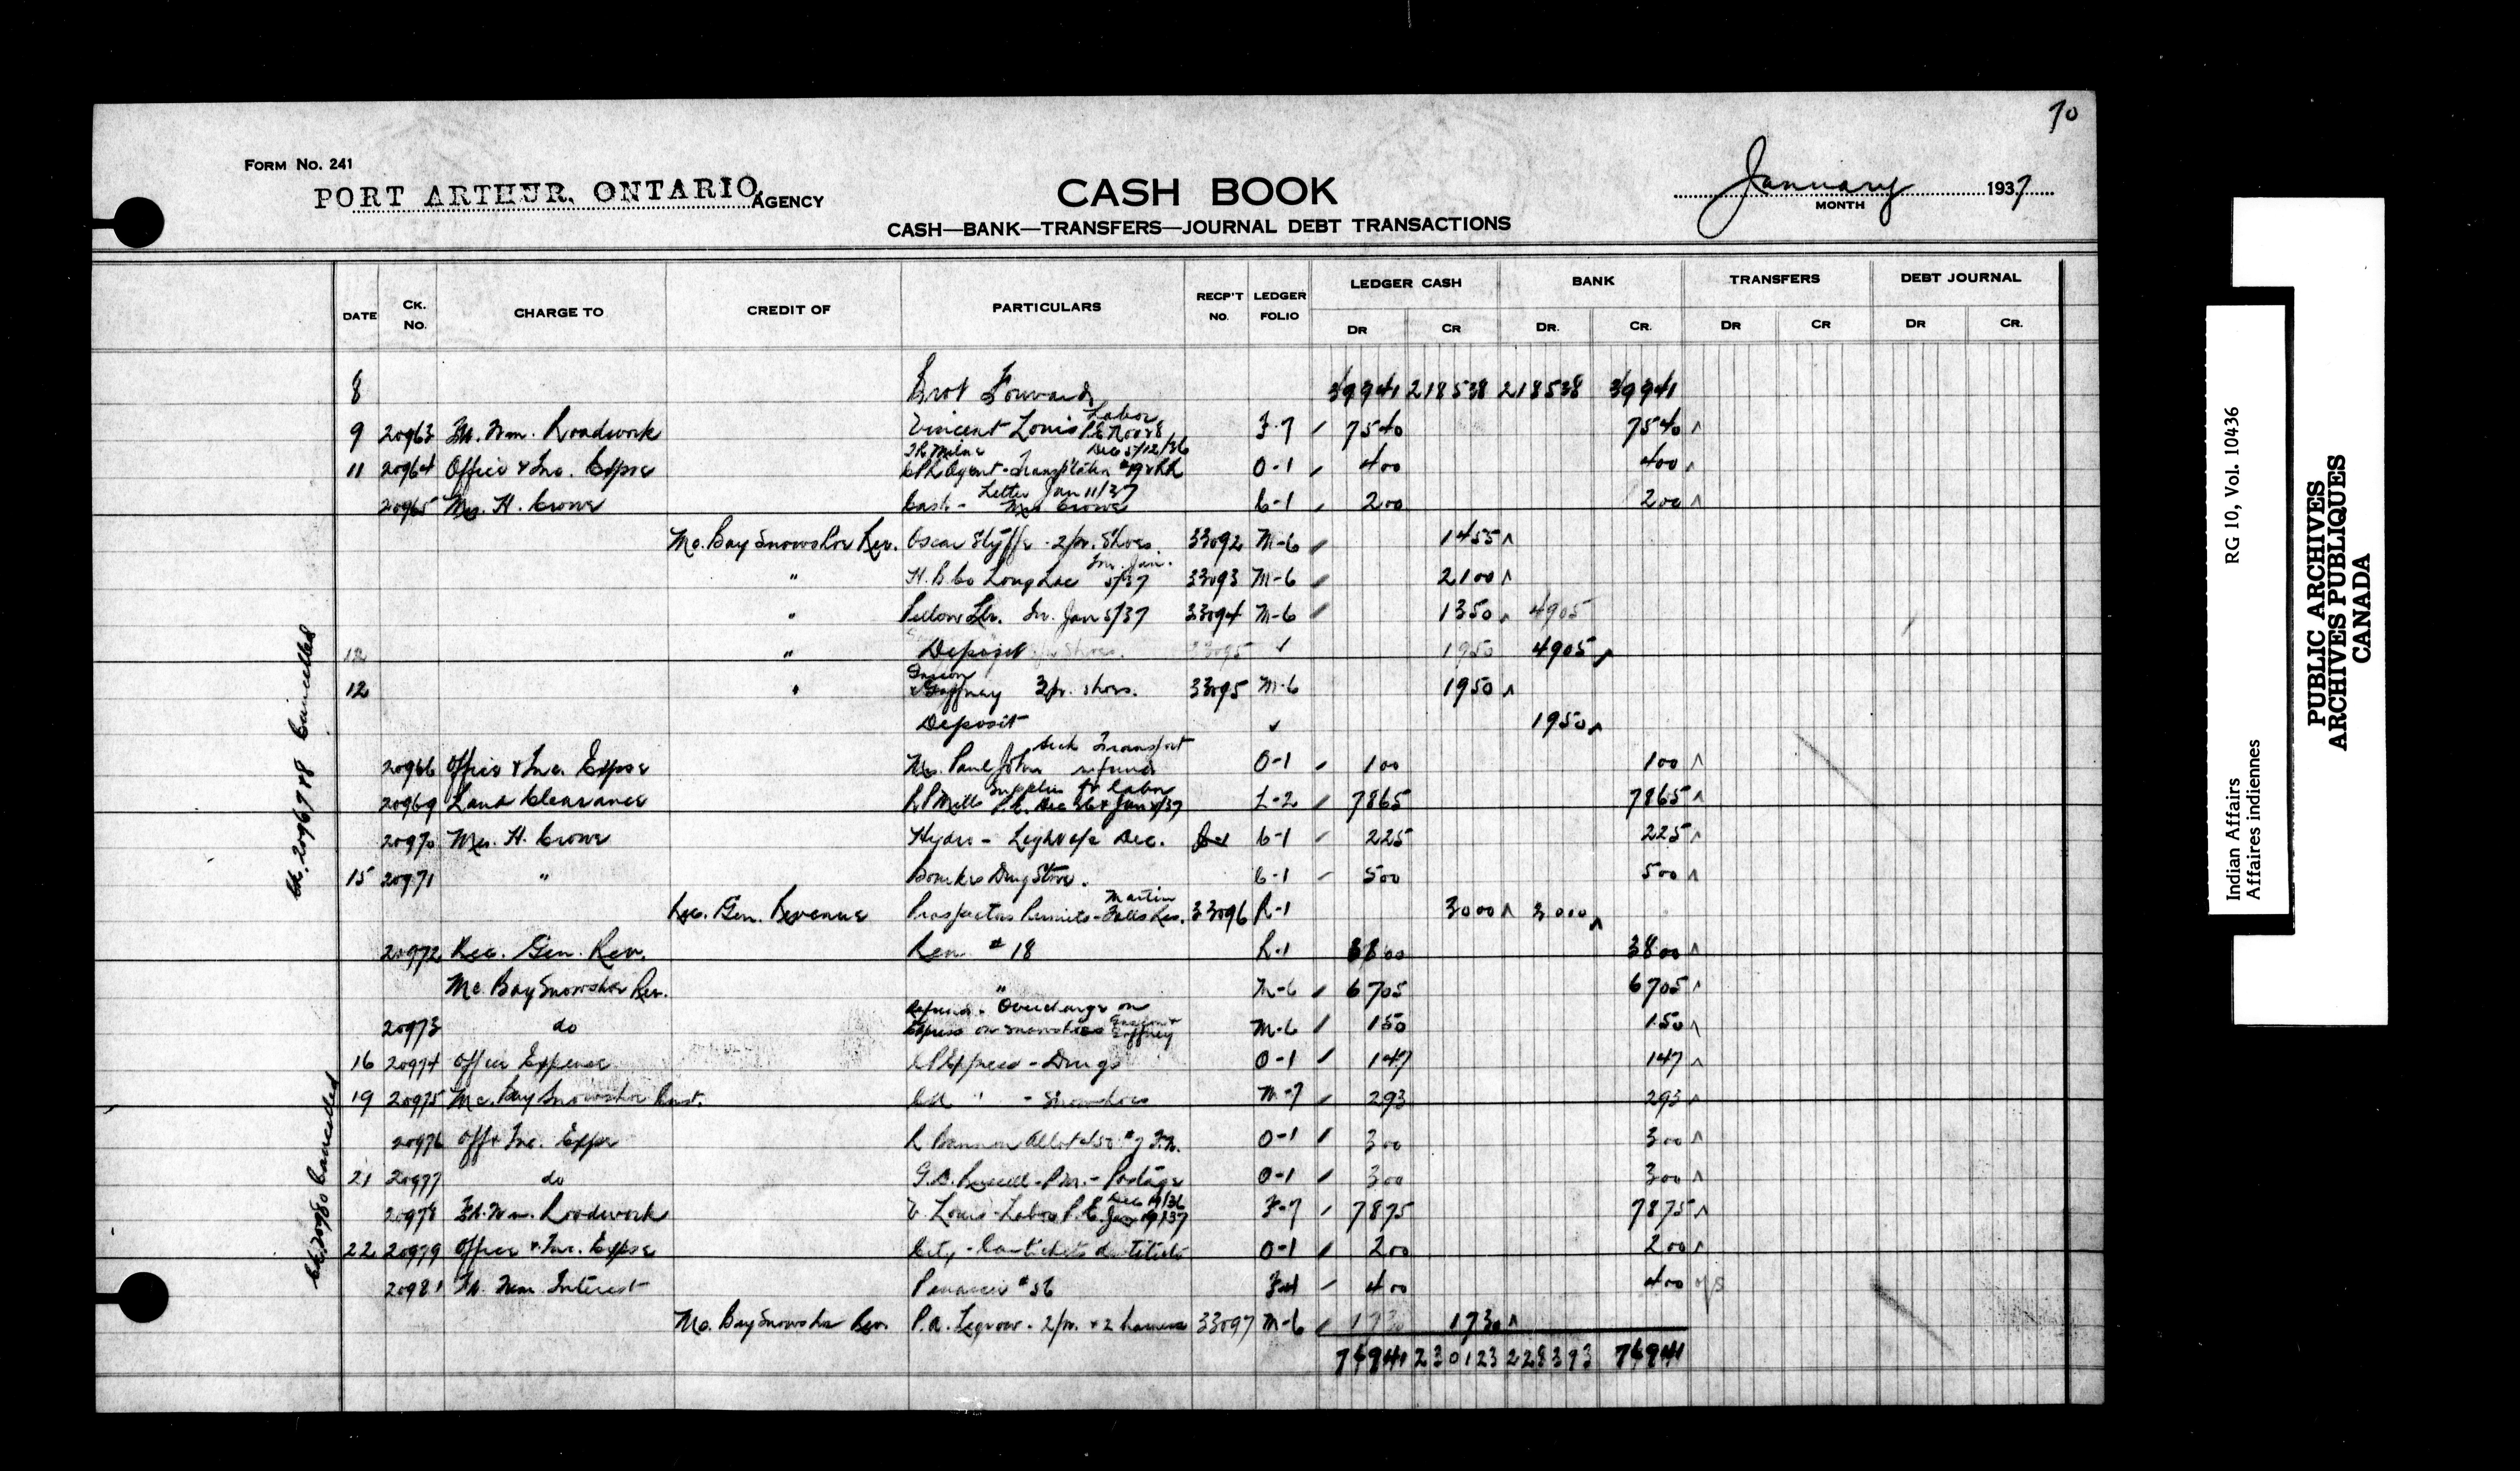 70
FORM NO. 241
PORT ARTHUR, ONTARIO AGENCY
CASH BOOK
January 1937
MONTH
CASH—BANK—TRANSFERS—JOURNAL DEBT TRANSACTIONS
DATE CK. NO. CHARGE TO CREDIT OF PARTICULARS RECP'T NO. LEDGER FOLIO LEDGER CASH BANK TRANSFERS DEBT JOURNAL
DR CR DR. CR. DR CR DR CR.
8 Brot Forward 39941 218538 218538 39941
9 20963 Ft. Wm. Roadwork Vincent Louis Labor P.E. Nov 28 Dec 5/12/36 F-7 7540 7540
11 20964 Office & Inc. Expse CPR Agent - 0-1 400 400
20965 Mrs. H. Crowe Cash - Mrs Crowe Letter Jan 11/37 C-1 200 200
Mo. Bay Snowshoe Rev. Oscar Styffe - 2 pr. Shoes. 33092 M-6 1455
" H. B. Co Long Lac Inv. Jan. 5/37 33093 M-6 2100
" Inv. Jan 5/37 33094 M-6 1350 4905
12 " Deposit 33095 1950 4905
12 " & Gaffney 3 pr. shoes. 33095 M-6 1950
Deposit 1950
20966 Office & Inc. Expse Mrs. Paul John refund Transport 0-1 100 100
20969 Land Clearance R P Mills Supplies & Labor P.E. Dec 26 & Jan 9/37 L-2 7865 7865
20970 Mrs. H. Crowe Hydro - Light a/c Dec. C-1 225 225
15 20971 " Drug Store. C-1 500 500
Rec. Gen. Revenue Prospectors Permits - Martin Falls Res. 33096 R-1 3000 3000
20972 Rec. Gen. Rev. Rem # 18 R-1 3800 3800
Mo. Bay Snowshoe Rev. " M-6 6705 6705
20973 do Refund - Overcharge on Express on snowshoes Gaffney M-6 150 150
16 20974 Office Expense CP Express - Drugs 0-1 147 147
19 20975 Mo. Bay Snowshoe " - Snowshoes M-7 293 293
20976 Off & Inc. Expse R Bannon 0-1 300 300
21 20977 do Russell - P.M. - Postage 0-1 300 300
20978 Ft. Wm. Roadwork V. Louis - Labor P.E. Dec 19/36 Jan 19/37 F-7 7875 7875
22 20979 Office & Inc. Expse City - Car tickets destitute 0-1 200 200
20981 Ft. Wm. Interest # 56 400 400 o/s
Mo. Bay Snowshoe Rev. P.A. Legrow - 2 pr. & 2 harness 33097 M-6 1730 1730
76941 230123 228393 76941
Ck. 20967 & 8 Cancelled
Ck. 20980 Cancelled
RG 10, Vol. 10436
Indian Affairs
Affaires indiennes
PUBLIC ARCHIVES
ARCHIVES PUBLIQUES
CANADA